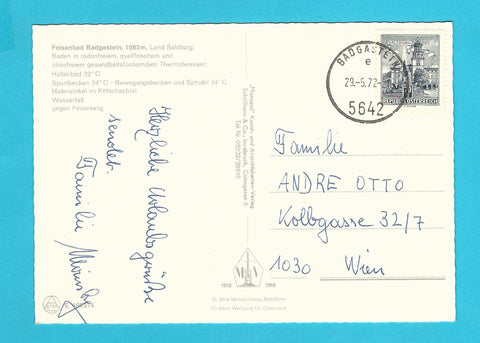 Felsenbad Badgastein, 1083 m, Land Salzburg,
Baden in radonfreiem, quellfrischem und
chlorfreiem gesundheitsförderndem Thermalwasser;
Hallenbad 32° C
Sportbecken 24° C - Bewegungsbecken und Sprudel 34° C
Malerwinkel im Kötschachtal
Wasserfall
gegen Feuersang
Herzliche Urlaubsgrüße
sendet
Familie
"Monopol" Kunst- und Ansichtskarten-Verlag
Schöllhorn & Co., Innsbruck,
Tel. Nr.
MKV
1918 1968
50 Jahre Monopolverlag Schöllhorn
50 Jahre Werbung für Österreich
BADGASTEIN
e
29.-5.72-
5642
REPUBLIK ÖSTERREICH
Familie
ANDRE OTTO
Kolbgasse 32/7
1030 Wien